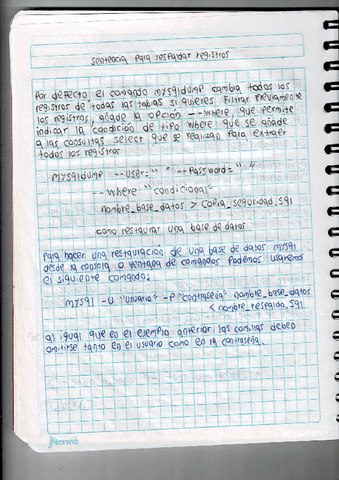 sentencia para respaldar registros
Por defecto el comando mysqldump cambia todos los
registros de todas las tablas si quieres filtrar previamente
los registros, añade la opción --where, que permite
indicar la condición de tipo where que se añade
a las consultas select que se realizan para extraer
todos los registros
MYSQLDUMP --user=" " --Password=" "
--where "condicional"
nombre_base_datos > copia_seguridad.sql
como restaurar una base de datos
Para hacer una restauración de una base de datos mysql
desde la consola o ventana de comandos Podemos usaremos
el siguiente comando:
mysql -U "usuario" -P "contraseña" nombre_base_datos
< nombre_respaldo.sql
al igual que en el ejemplo anterior las comillas deben
omitirse tanto en el usuario como en la contraseña.
Norma